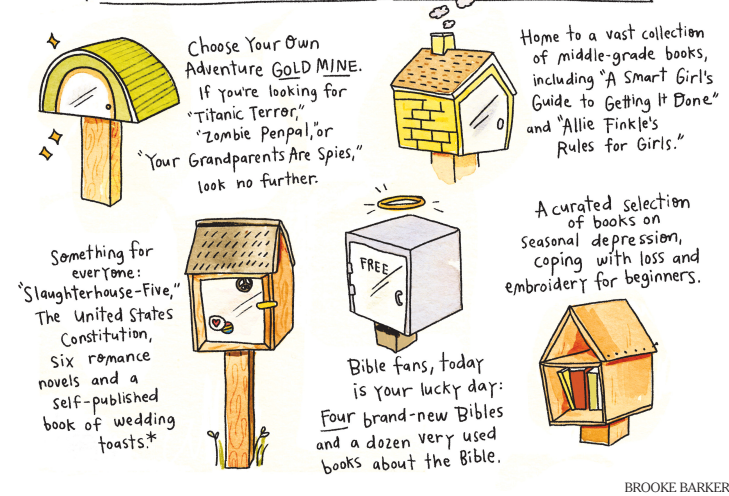 Choose Your Own
Adventure GOLD MINE.
If you're looking for
"Titanic Terror,"
"Zombie Penpal," or
"Your Grandparents Are Spies,"
look no further.
Home to a vast collection
of middle-grade books,
including "A Smart Girl's
Guide to Getting It Done"
and "Allie Finkle's
Rules for Girls."
Something for
everyone:
"Slaughterhouse-Five,"
The United States
Constitution,
six romance
novels and a
self-published
book of wedding
toasts.*
FREE
Bible fans, today
is your lucky day:
Four brand-new Bibles
and a dozen very used
books about the Bible.
A curated selection
of books on
seasonal depression,
coping with loss and
embroidery for beginners.
BROOKE BARKER